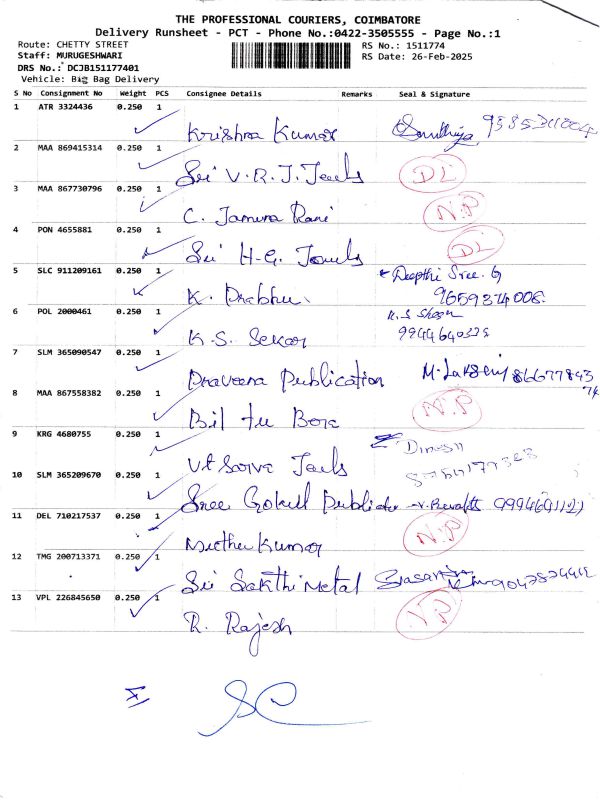 THE PROFESSIONAL COURIERS, COIMBATORE
Delivery Runsheet - PCT - Phone No.:0422-3505555 - Page No.:1
Route: CHETTY STREET
RS No.: 1511774
Staff: MURUGESHWARI
RS Date: 26-Feb-2025
DRS No.: DCJB151177401
Vehicle: Big Bag Delivery
S No Consignment No Weight PCS Consignee Details Remarks Seal & Signature
1 ATR 3324436 0.250 1
Krishna Kumar
2 MAA 869415314 0.250 1
Sri V.R.J. Jewels DL
3 MAA 867730796 0.250 1
C. Jamuna Rani N.P
4 PON 4655881 0.250 1
Sri H.G. Jewels DL
5 SLC 911209161 0.250 1 Deepthi Sree. G
K. Prabhu 9659374008
6 POL 2000461 0.250 1
K.S. Sekar 9944640325
7 SLM 365090547 0.250 1
Praveena Publication
8 MAA 867558382 0.250 1
N.P
9 KRG 4680755 0.250 1 Dinesh
Jewels
10 SLM 365209670 0.250 1
Sree Gokul
11 DEL 710217537 0.250 1 N.P
Muthu Kumar
12 TMG 200713371 0.250 1
Sri Sakthi Metal
13 VPL 226845650 0.250 1 N.P
R. Rajesh